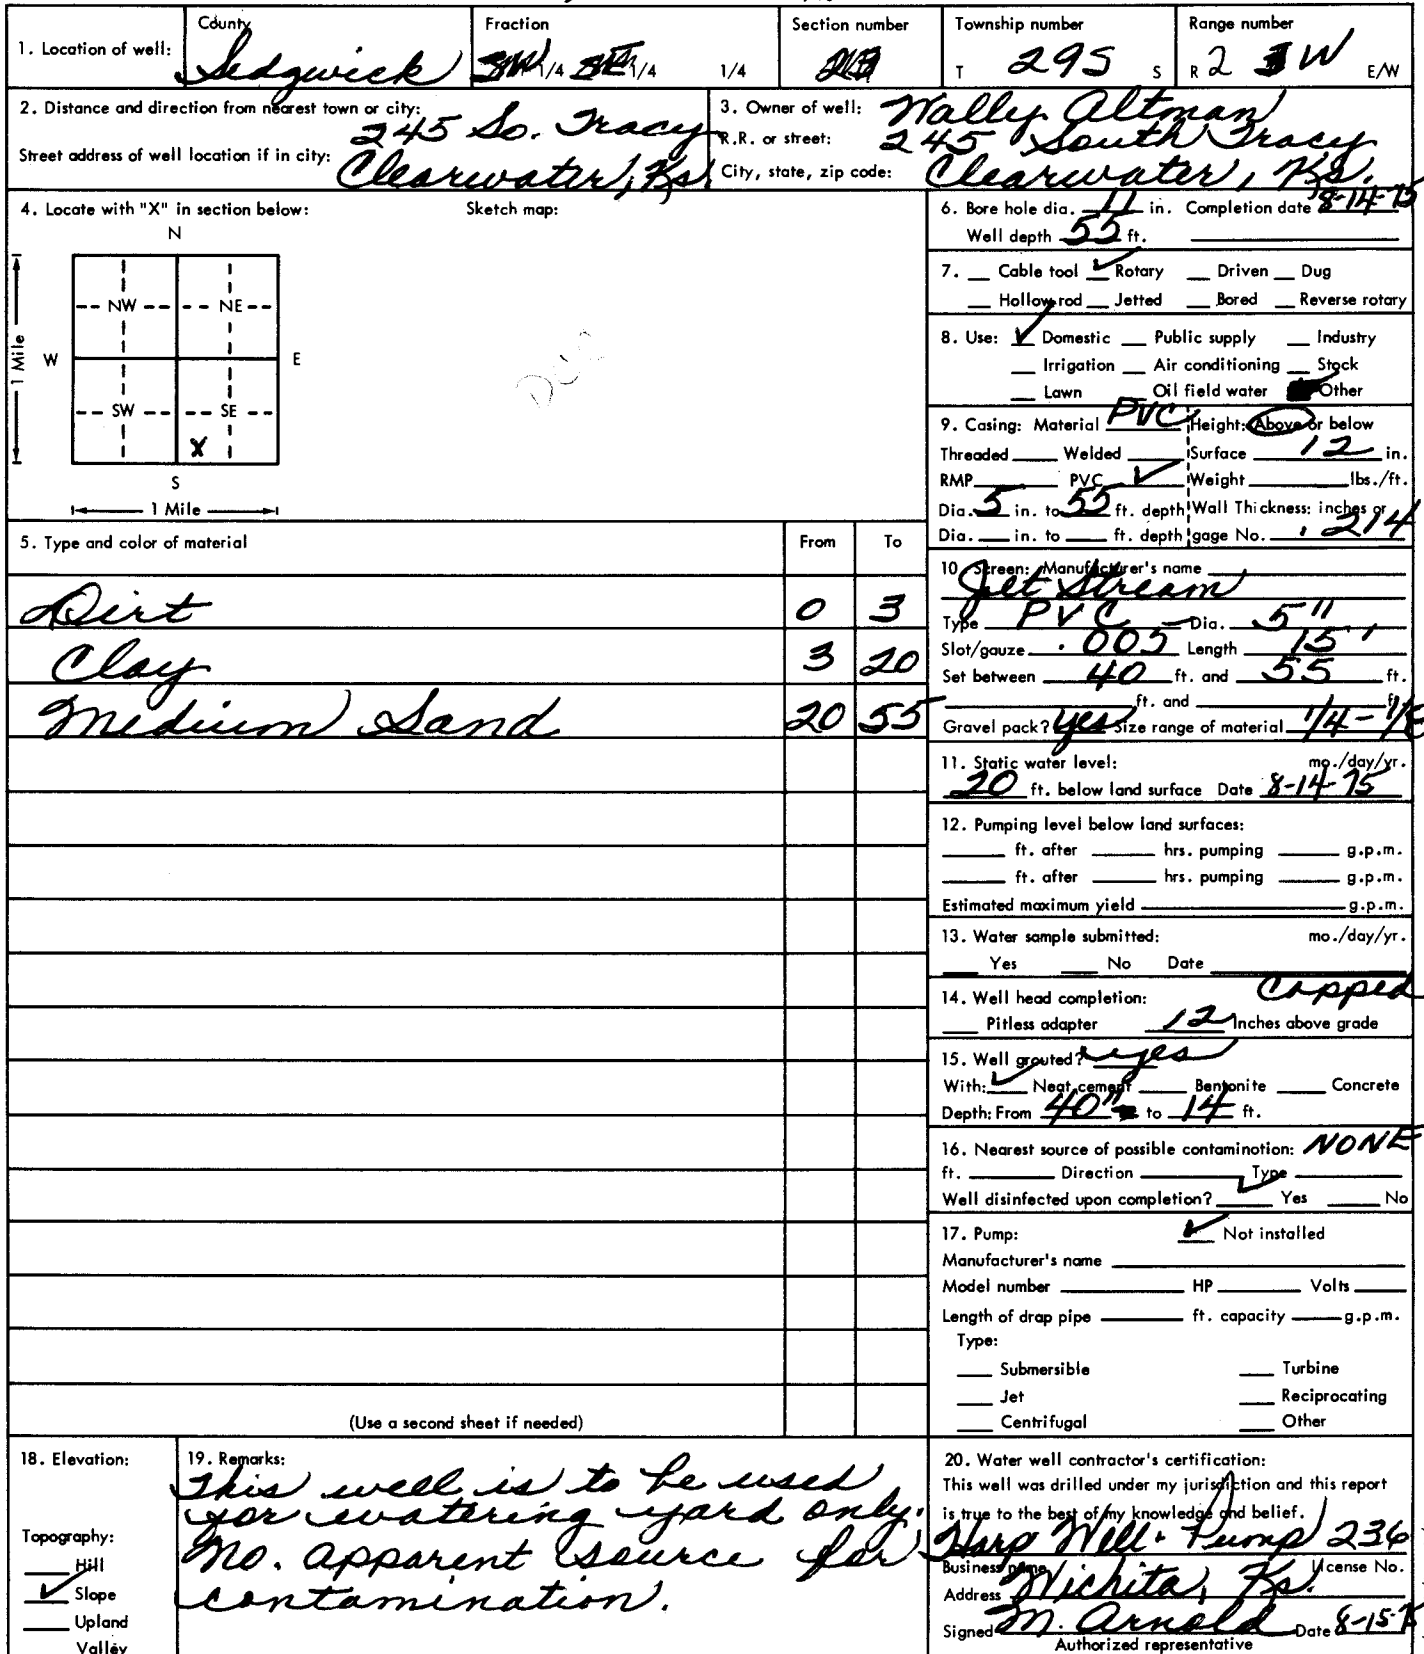 County Fraction Section number Township number Range number
1. Location of well: Sedgwick SW 1/4 SE 1/4 1/4 T 29S S R 2 W E/W
2. Distance and direction from nearest town or city: 245 So. Tracy
Street address of well location if in city: Clearwater, Ks.
3. Owner of well: Wally Altman
R.R. or street: 245 South Tracy
City, state, zip code: Clearwater, Ks.
4. Locate with "X" in section below: Sketch map:
N
NW NE
W E
1 Mile
SW SE
X
S
1 Mile
5. Type and color of material From To
Dirt 0 3
Clay 3 20
Medium Sand 20 55
(Use a second sheet if needed)
6. Bore hole dia. 11 in. Completion date 8-14-75
Well depth 55 ft.
7. __ Cable tool ✓ Rotary __ Driven __ Dug
__ Hollow rod __ Jetted __ Bored __ Reverse rotary
8. Use: ✓ Domestic __ Public supply __ Industry
__ Irrigation __ Air conditioning __ Stock
__ Lawn __ Oil field water Other
9. Casing: Material PVC Height: Above or below
Threaded ____ Welded ____ Surface 12 in.
RMP ____ PVC ✓ Weight ____ lbs./ft.
Dia. 5 in. to 55 ft. depth Wall Thickness: inches or
Dia. ___ in. to ___ ft. depth gage No. .214
10. Screen: Manufacturer's name ____
Jet Stream
Type PVC Dia. 5"
Slot/gauze .005 Length 15'
Set between 40 ft. and 55 ft.
____ ft. and ____ ft.
Gravel pack? yes Size range of material 1/4 - 1/8
11. Static water level: mo./day/yr.
20 ft. below land surface Date 8-14-75
12. Pumping level below land surfaces:
____ ft. after ____ hrs. pumping ____ g.p.m.
____ ft. after ____ hrs. pumping ____ g.p.m.
Estimated maximum yield ____ g.p.m.
13. Water sample submitted: mo./day/yr.
__ Yes __ No Date ____
14. Well head completion: Capped
__ Pitless adapter 12 Inches above grade
15. Well grouted? yes
With: ✓ Neat cement ____ Bentonite ____ Concrete
Depth: From 40" to 14 ft.
16. Nearest source of possible contamination: NONE
ft. ____ Direction ____ Type ____
Well disinfected upon completion? ✓ Yes ____ No
17. Pump: ✓ Not installed
Manufacturer's name ____
Model number ____ HP ____ Volts ____
Length of drap pipe ____ ft. capacity ____ g.p.m.
Type:
__ Submersible __ Turbine
__ Jet __ Reciprocating
__ Centrifugal __ Other
18. Elevation:
Topography:
__ Hill
✓ Slope
__ Upland
Valley
19. Remarks:
This well is to be used
for watering yard only.
No. apparent source for
contamination.
20. Water well contractor's certification:
This well was drilled under my jurisdiction and this report
is true to the best of my knowledge and belief.
Harp Well & Pump 236
Business name License No.
Address Wichita, Ks.
Signed M. Arnold Date 8-15-75
Authorized representative